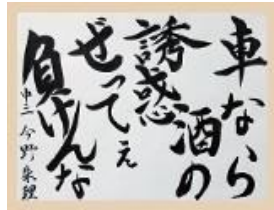 車なら
酒の
誘惑
ぜってぇ
負けんな
中三 今野 来理